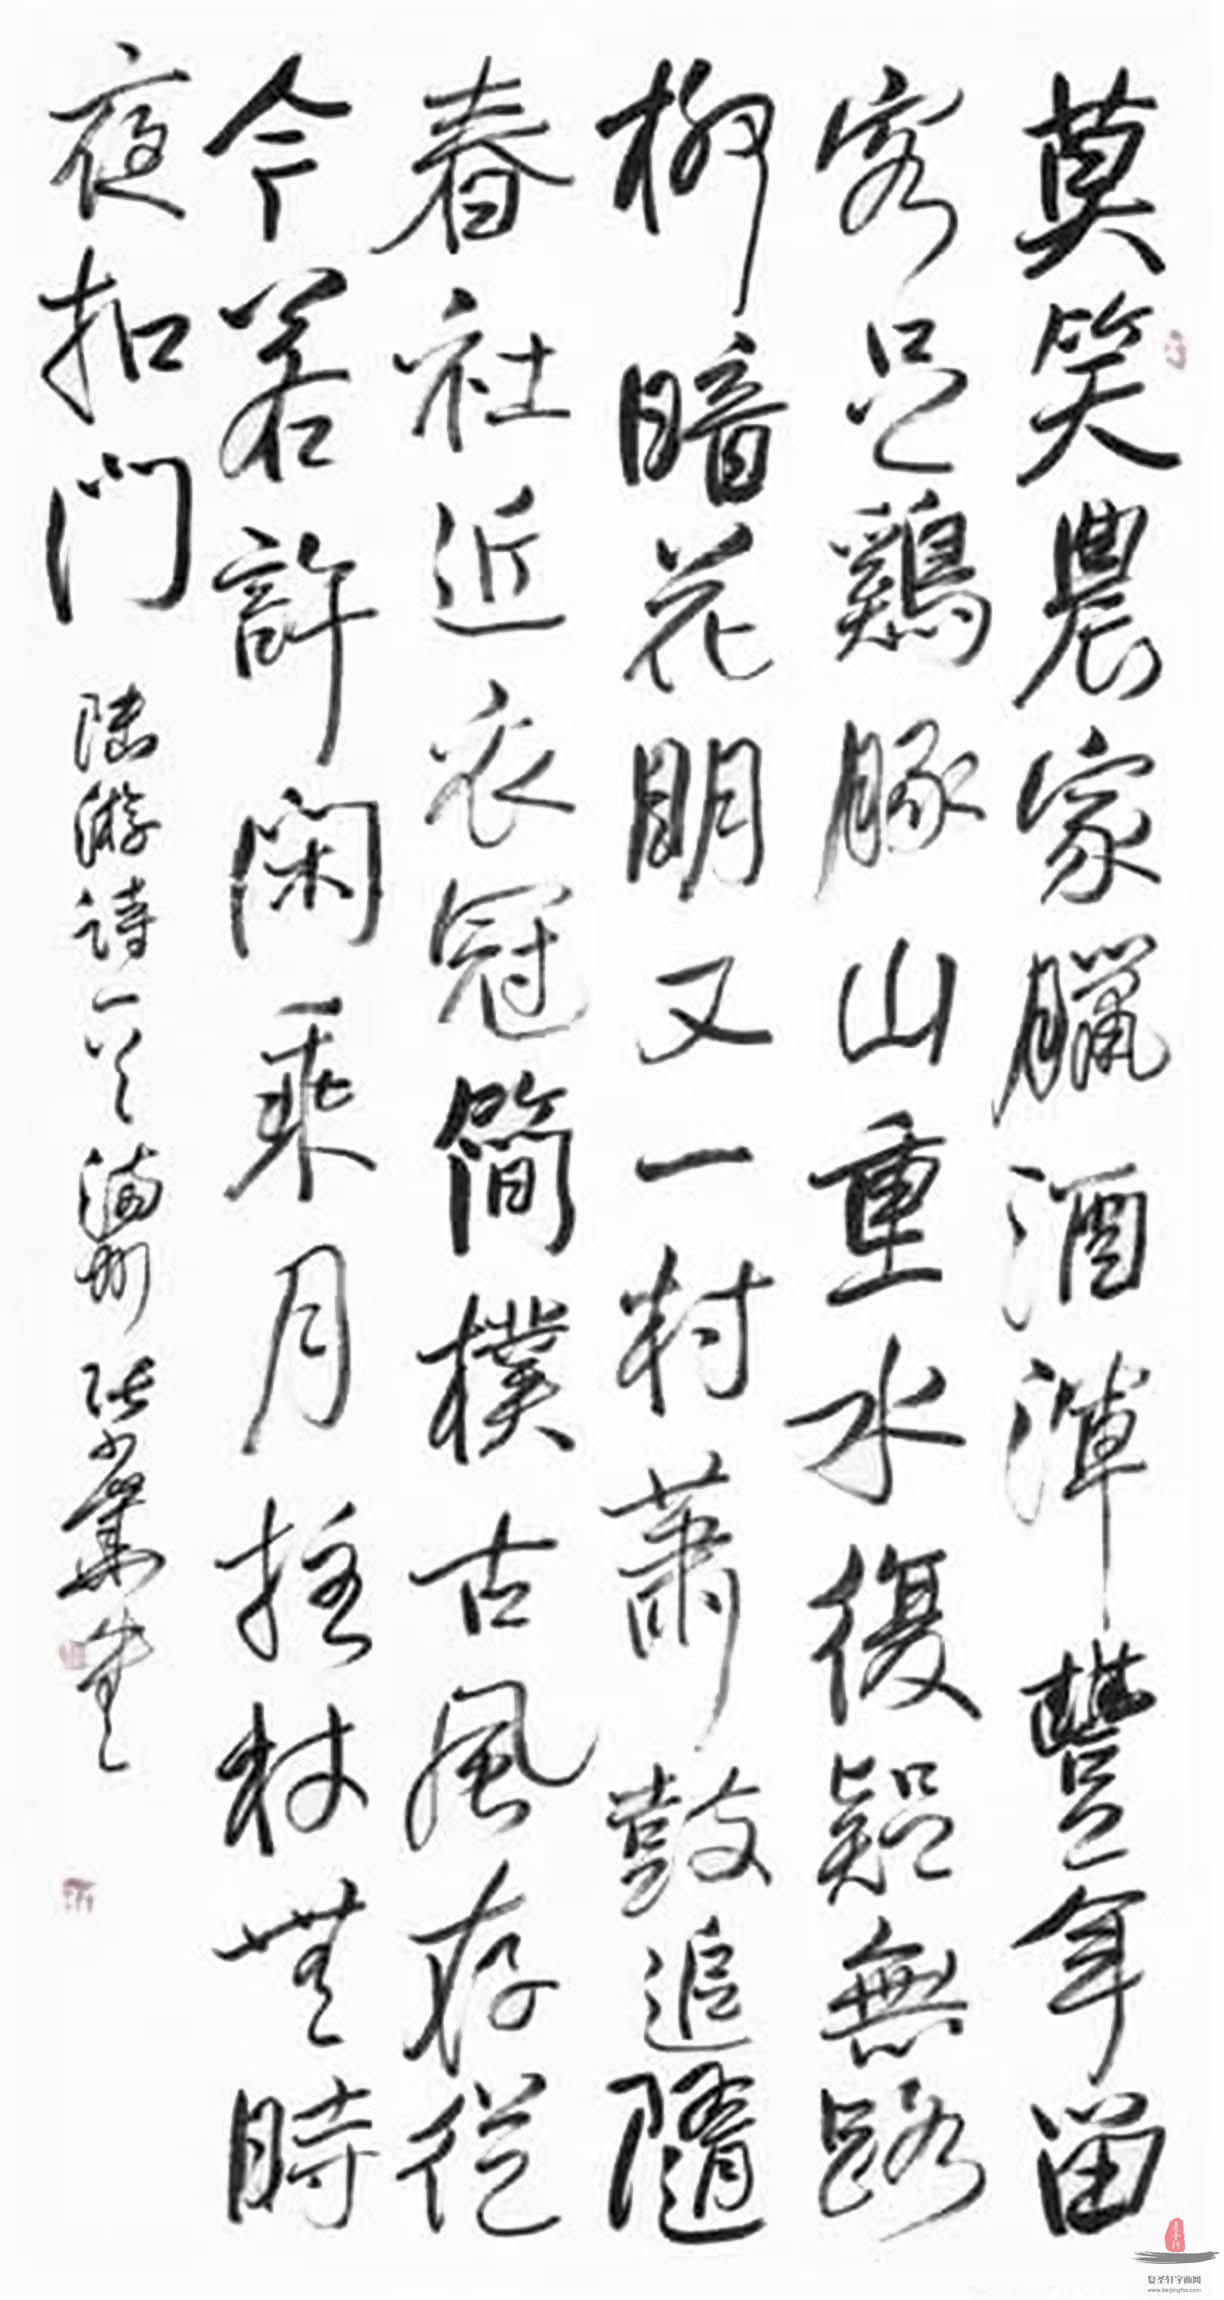 莫笑農家臘酒渾豐年留
客足鷄豚山重水復疑無路
柳暗花明又一村蕭鼓追隨
春社近衣冠簡樸古風存從
今若許閑乘月拄杖無時
夜扣門 陸游詩一首
复圣轩字画网
www.beijingfsx.com